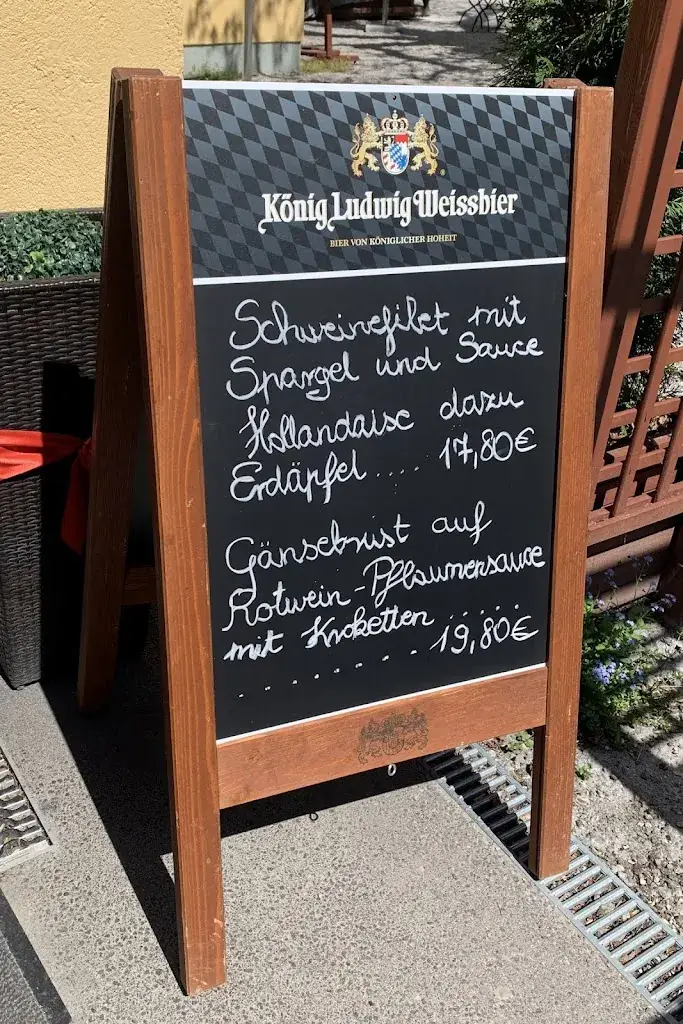 König Ludwig Weissbier
BIER VON KÖNIGLICHER HOHEIT
Schweinefilet mit
Spargel und Sauce
Hollandaise dazu
Erdäpfel .... 17,80€
Gänsebrust auf
Rotwein-Pflaumensauce
mit Kroketten ......
......... 19,80€